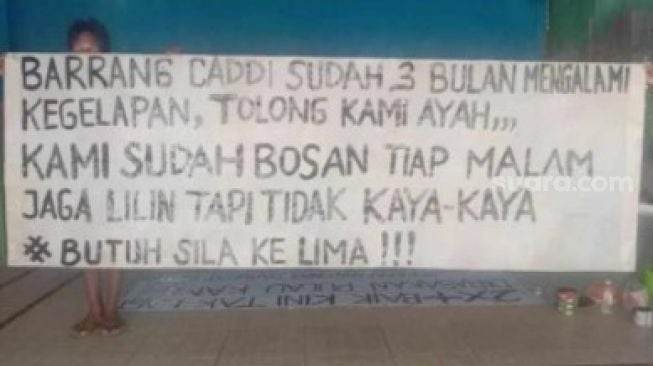 BARRANG CADDI SUDAH 3 BULAN MENGALAMI
KEGELAPAN, TOLONG KAMI AYAH,,,
KAMI SUDAH BOSAN TIAP MALAM
JAGA LILIN TAPI TIDAK KAYA-KAYA
# BUTUH SILA KE LIMA !!!
suara.com